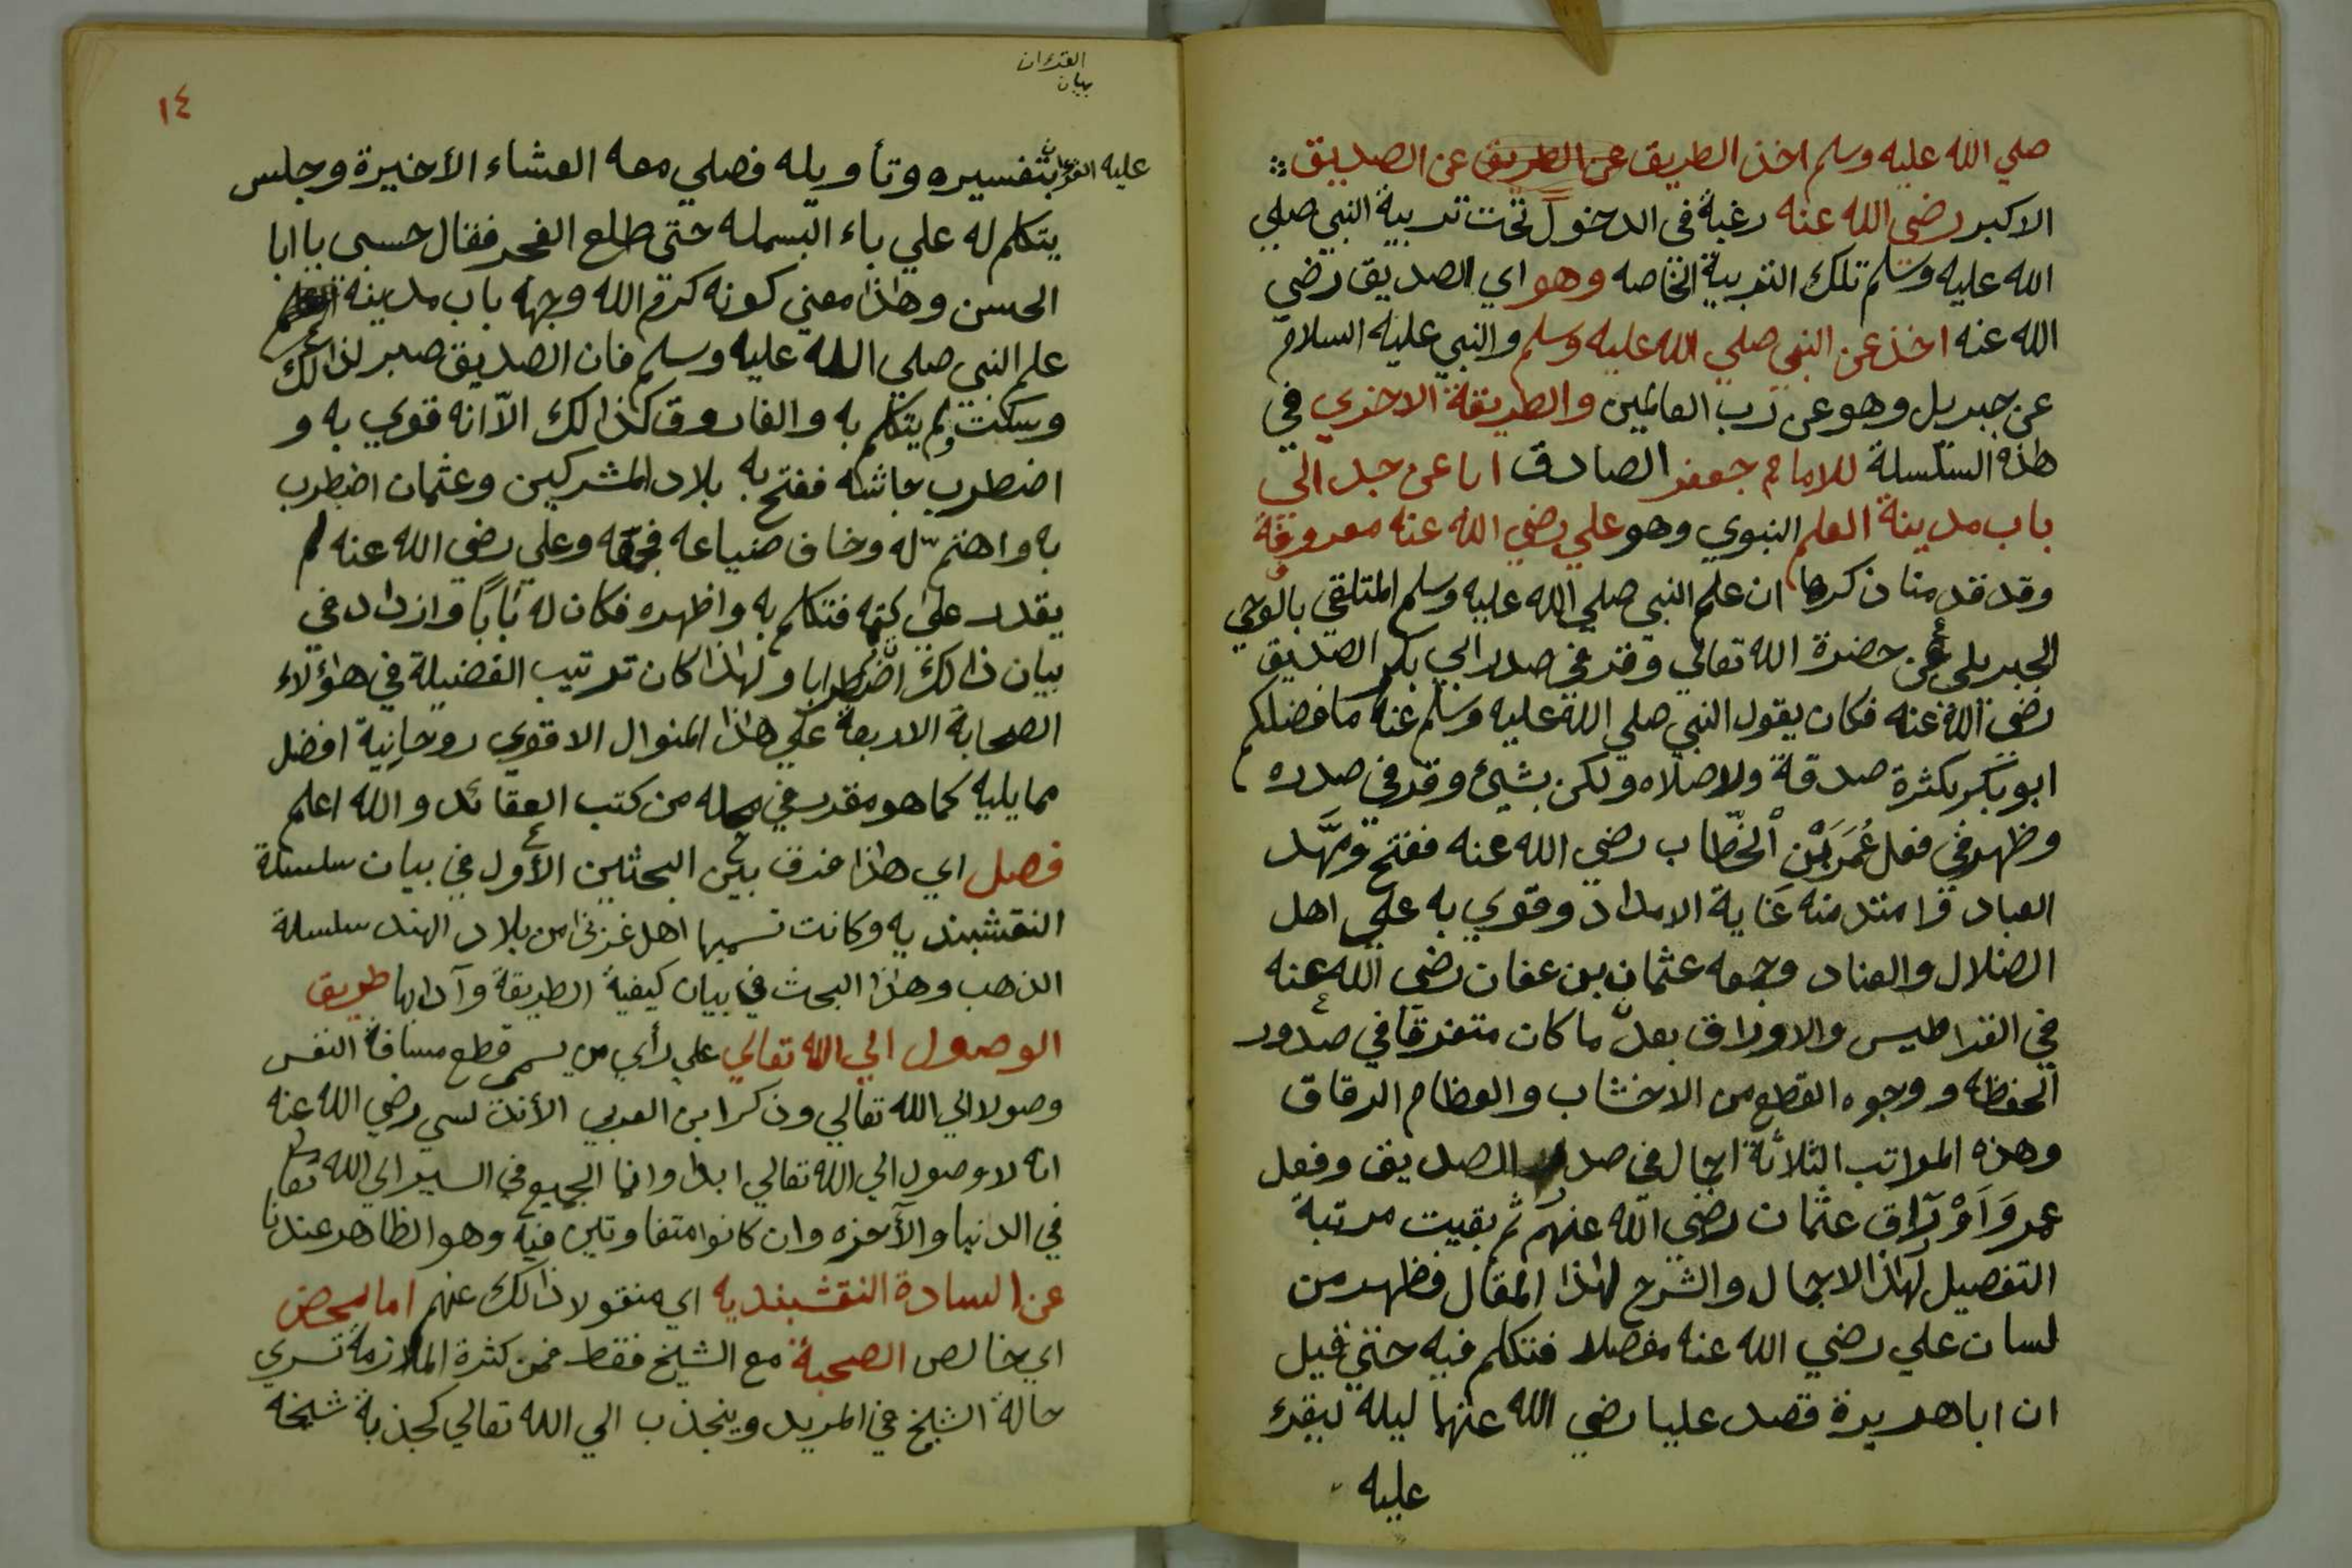 صلي الله عليه وسلم اخذ الطريق عن الطريق عن الصديق
الاكبر رضي الله عنه رغبة في الدخول تحت تربية النبي صلي
الله عليه وسلم تلك التربية الخاصه وهو اي الصديق رضي
الله عنه اخذ عن النبي صلي الله عليه وسلم والنبي عليه السلام
عن جبريل وهو عن رب العالمين والطريقة الاخري في
هذه السلسلة للامام جعفر الصادق ابا عن جد الي
باب مدينة العلم النبوي وهو علي رضي الله عنه معروفة
وقد قدمنا ذكرها ان علم النبي صلي الله عليه وسلم المتلقي بالوحي
الجبريلي عن حضرة الله تعالي وقر في صدر ابي بكر الصديق
رضي الله عنه فكان يقول النبي صلي الله عليه وسلم عنه ما فضلكم
ابو بكر بكثرة صدقة ولاصلاه ولكن بشيئ وقر في صدره
وظهر في فعل عُمَرَ بْن الخطاب رضي الله عنه ففتح ومهَّد
العباد وامتد منه غاية الامداد وقوي به علي اهل
الضلال والعناد وجمعه عثمان بن عفان رضي الله عنه
في القراطيس والاوراق بعد ما كان متفرقا في صدور
الحفظه ووجوه القطع من الاخشاب والعظام الرقاق
وهذه المراتب الثلاثة اجمال في صدر الصديق وفعل
عمر وَاَوْرَاق عثمان رضي الله عنهم ثم بقيت مرتبة
التفصيل لهذا الاجمال والشرح لهذا المقال فظهر من
لسان علي رضي الله عنه مفصلا فتكلم فيه حتي قيل
ان اباهريرة قصد عليا رضي الله عنهما ليلة ليقرء
عليه
القرءان
بيان
١٤
عليه القرءان بتفسيره وتأويله فصلي معه العشاء الأخيرة وجلس
يتكلم له علي باء البسمله حتى طلع الفجر فقال حسبي يا ابا
الحسن وهذا معني كونه كرم الله وجهه باب مدينة العلم
علم النبي صلي الله عليه وسلم فان الصديق صبر لذالك
وسكت ولم يتكلم به والفاروق كذالك الاّ انه قوي به و
اضطرب جاشه ففتح به بلاد المشركين وعثمان اضطرب
به واهتم له وخاف ضياعه فجمعه وعلي رضي الله عنه لم
يقدر علي كتمه فتكلم به واظهره فكان له بابًا وازداد في
بيان ذالك اضطرابا ولهذا كان ترتيب الفضيلة في هؤلاء
الصحابة الاربعة علي هذا المنوال الاقوي روحانية افضل
مما يليه كما هو مقرر في محله من كتب العقائد والله اعلم
فصل اي هذا فرق بين البحثين الأول في بيان سلسلة
النقشبنديه وكانت تسميها اهل غزنى من بلاد الهند سلسلة
الذهب وهذا البحث في بيان كيفية الطريقة وآدابها طريق
الوصول الي الله تعالي علي رأي من يسمي قطع مسافة النفس
وصولا الي الله تعالي وذكر ابن العربي الأندلسي رضي الله عنه
انه لا وصول الي الله تعالي ابدا وانما الجميع في السير الي الله تعا
في الدنيا والآخره وان كانوا متفاوتين فيه وهو الظاهر عندنا
عن السادة النقشبنديه اي منقولا ذالك عنهم اما بمحض
اي خالص الصحبة مع الشيخ فقط فمن كثرة الملازمة تسري
حالة الشيخ في المريد وينجذب الي الله تعالي كجذبة شيخه